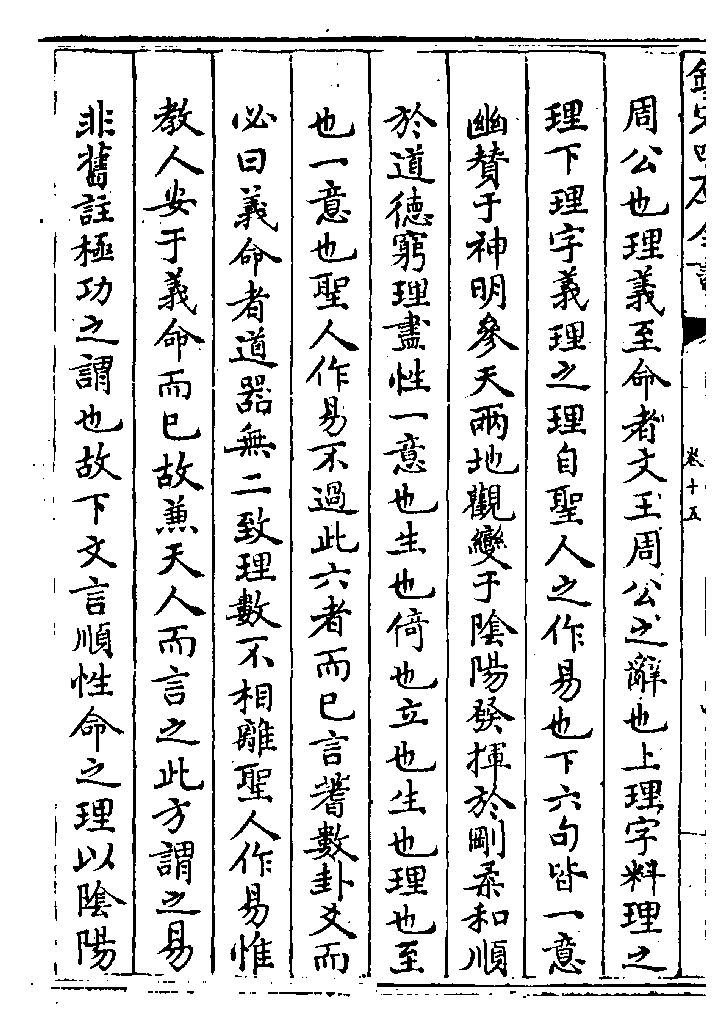 欽定四庫全書
卷十五
周公也理義至命者文王周公之辭也上理字料理之
理下理字義理之理自聖人之作易也下六句皆一意
幽賛于神明參天兩地觀變于隂陽發揮於剛柔和順
於道德窮理盡性一意也生也倚也立也生也理也至
也一意也聖人作易不過此六者而已言蓍數卦爻而
必曰義命者道器無二致理數不相離聖人作易惟
教人安于義命而已故兼天人而言之此方謂之易
非舊註極功之謂也故下文言順性命之理以隂陽